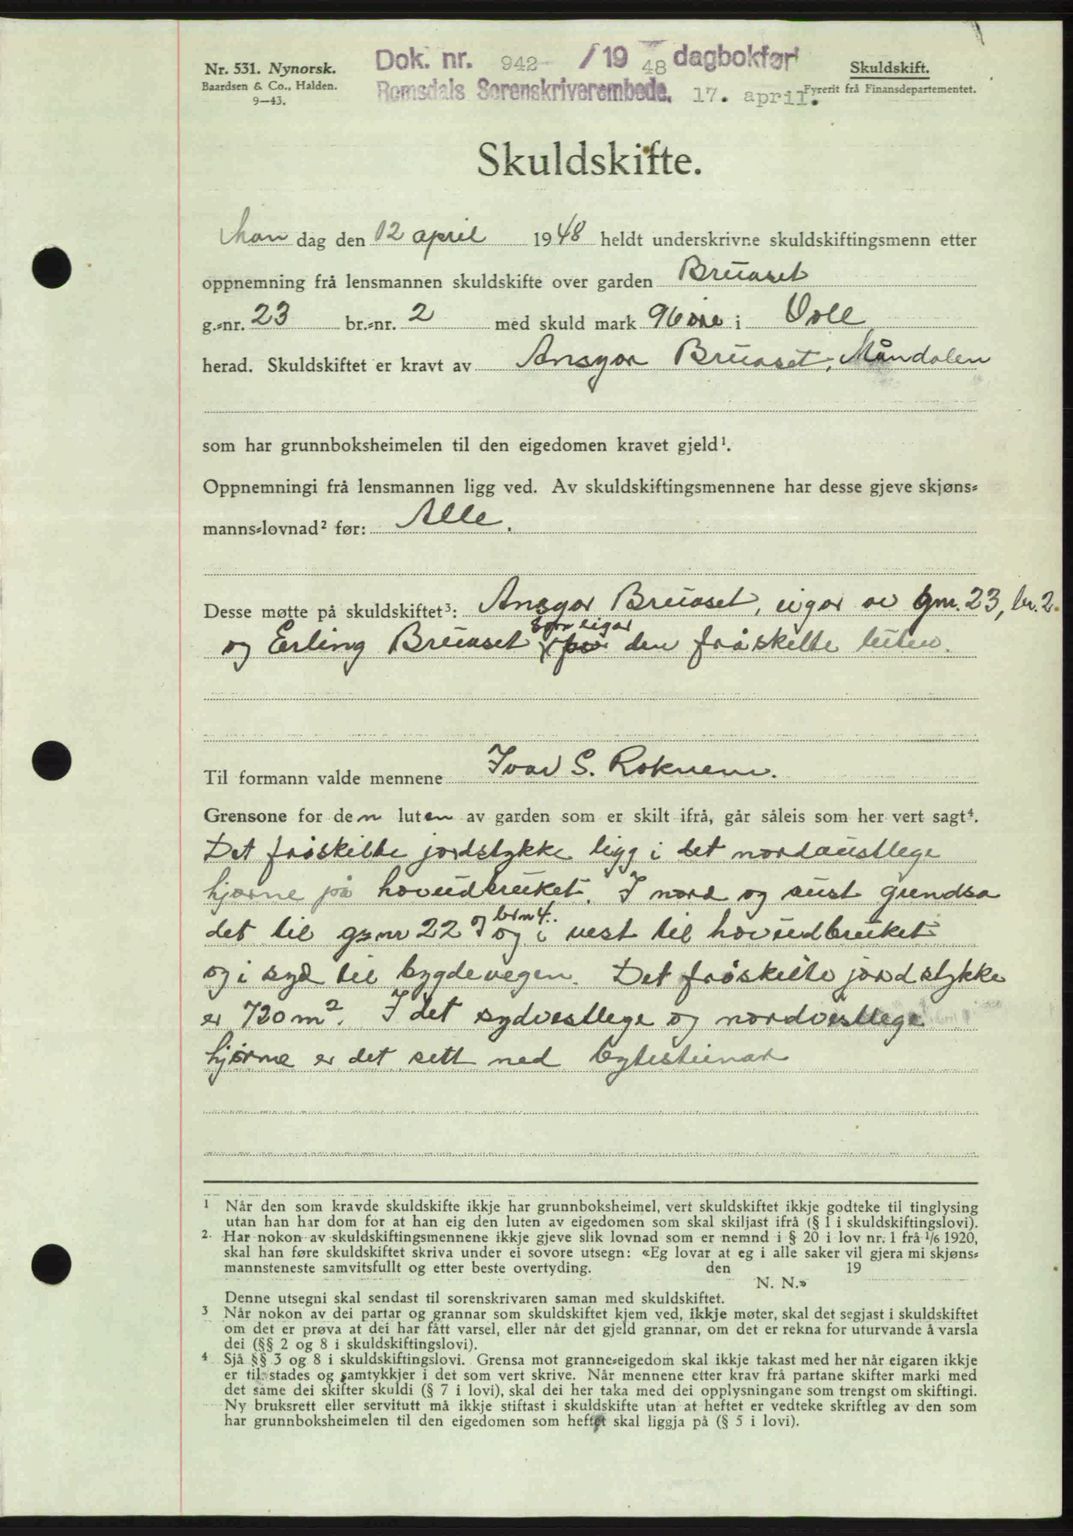 Nr. 531. Nynorsk.
Baardsen & Co., Halden.
9—43.
Dok. nr. 942 / 19 48 dagbokført
Romsdals Sorenskriverembede. 17. april.
Skuldskift.
Fyrerit frå Finansdepartementet.
Skuldskifte.
Mon dag den 12 april 1948 heldt underskrivne skuldskiftingsmenn etter
oppnemning frå lensmannen skuldskifte over garden Bruaset
g.-nr. 23 br.-nr. 2 med skuld mark 96 øre i Voll
herad. Skuldskiftet er kravt av Ansgar Bruaset, Måndalen
som har grunnboksheimelen til den eigedomen kravet gjeld¹.
Oppnemningi frå lensmannen ligg ved. Av skuldskiftingsmennene har desse gjeve skjøns-
manns-lovnad² før: Alle.
Desse møtte på skuldskiftet³: Ansgar Bruaset, eigar av gnr. 23, br. 2.
som eigar
og Erling Bruaset for den fråskilte luten.
Til formann valde mennene Ivar S. Roknem.
Grensone for den luten av garden som er skilt ifrå, går såleis som her vert sagt⁴.
Det fråskilte jordstykke ligg i det nordaustlege
hjørne på hovudbruket. I nord og aust grendsa
det til g-nr 22 og brn 4. og i vest til hovudbruket
og i syd til bygdevegen. Det fråskilte jordstykke
er 720 m². I det sydvestlege og nordvestlege
hjørne er det sett ned bytesteinar
¹ Når den som kravde skuldskifte ikkje har grunnboksheimel, vert skuldskiftet ikkje godteke til tinglysing
utan han har dom for at han eig den luten av eigedomen som skal skiljast ifrå (§ 1 i skuldskiftingslovi).
². Har nokon av skuldskiftingsmennene ikkje gjeve slik lovnad som er nemnd i § 20 i lov nr. 1 frå 1/6 1920,
skal han føre skuldskiftet skriva under ei sovore utsegn: «Eg lovar at eg i alle saker vil gjera mi skjøns-
mannsteneste samvitsfullt og etter beste overtyding. den 19
N. N.»
Denne utsegni skal sendast til sorenskrivaren saman med skuldskiftet.
³ Når nokon av dei partar og grannar som skuldskiftet kjem ved, ikkje møter, skal det segjast i skuldskiftet
om det er prøva at dei har fått varsel, eller når det gjeld grannar, om det er rekna for uturvande å varsla
dei (§§ 2 og 8 i skuldskiftingslovi).
⁴ Sjå §§ 3 og 8 i skuldskiftingslovi. Grensa mot granne-eigedom skal ikkje takast med her når eigaren ikkje
er til stades og samtykkjer i det som vert skrive. Når mennene etter krav frå partane skifter marki med
det same dei skifter skuldi (§ 7 i lovi), skal dei her taka med dei opplysningane som trengst om skiftingi.
Ny bruksrett eller servitutt må ikkje stiftast i skuldskifte utan at heftet er vedteke skriftleg av den som
har grunnboksheimelen til den eigedomen som heftet skal liggja på (§ 5 i lovi).